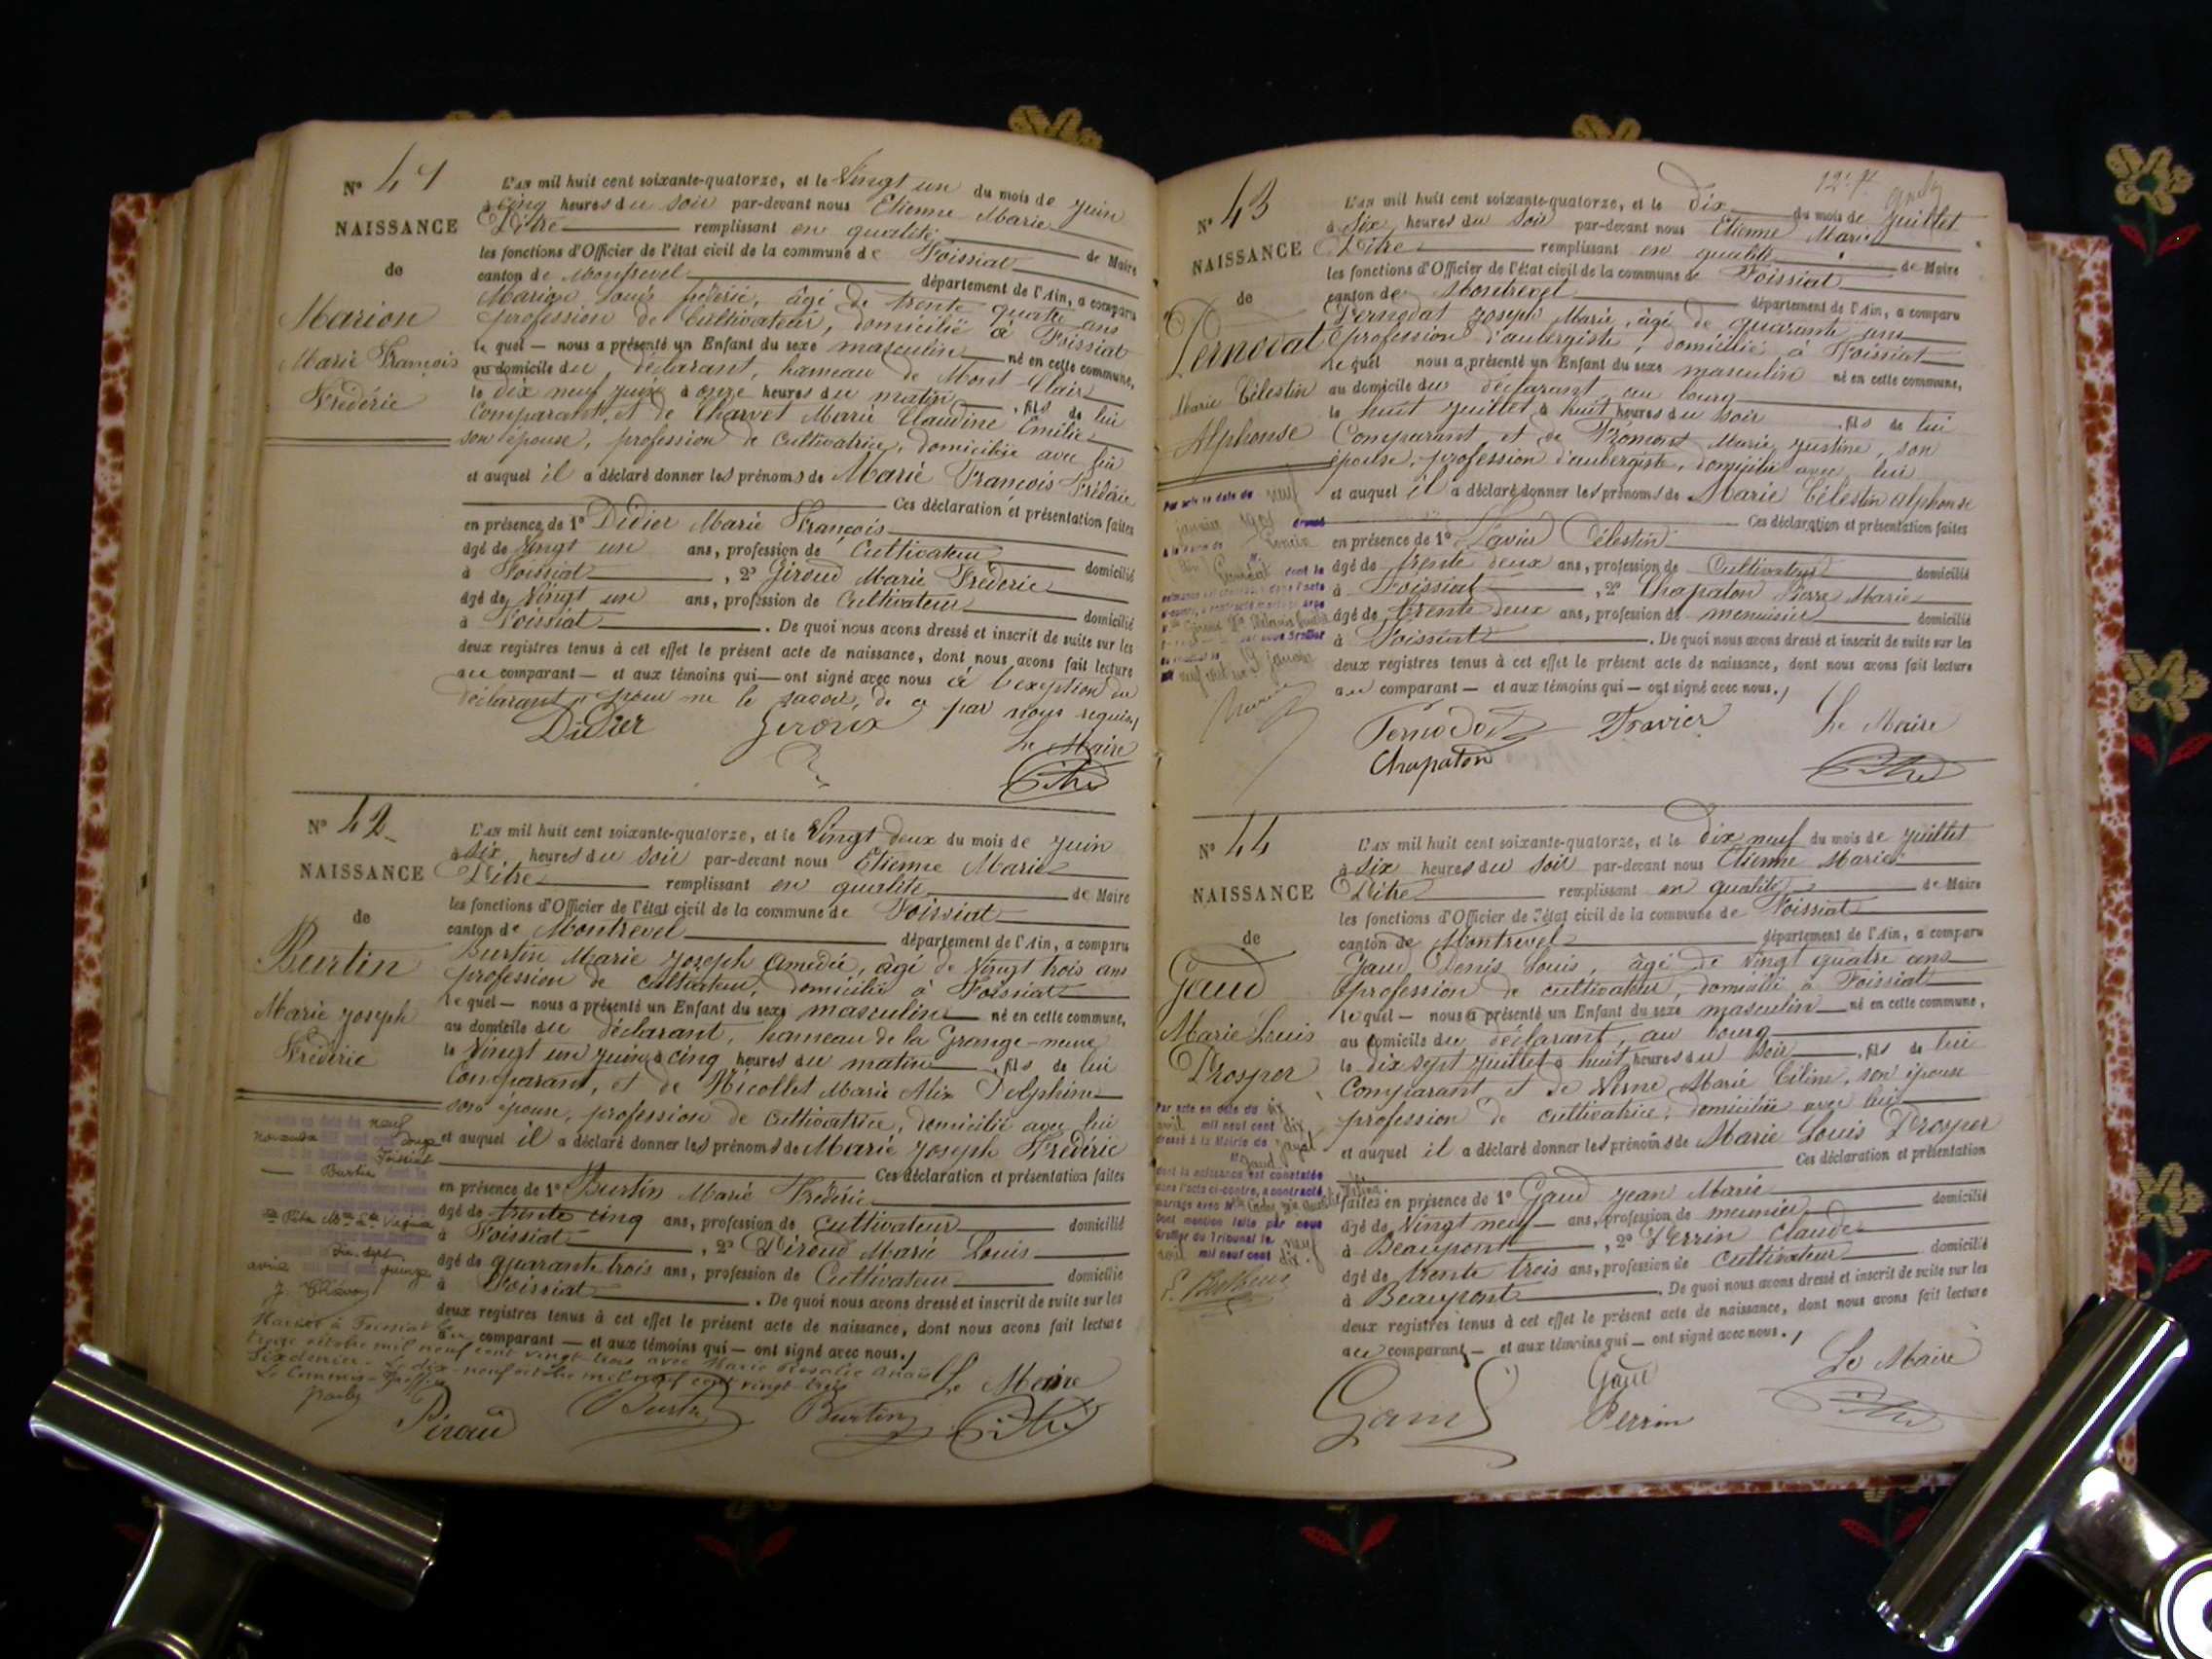 N° 41
NAISSANCE
de
Marion
Marie François
Frédéric
L'AN mil huit cent soixante-quatorze, et le Vingt un du mois de Juin
à cinq heures du soir par-devant nous Etienne Marie
Pitre remplissant en qualité de Maire
les fonctions d'Officier de l'état civil de la commune de Foissiat
canton de Montrevel département de l'Ain, a comparu
Marion Louis frédéric, âgé de trente quatre ans
profession de Cultivateur, domicilié à Foissiat
le quel — nous a présenté un Enfant du sexe masculin né en cette commune,
au domicile du déclarant, hameau de Mont-Clair
le dix neuf juin à onze heures du matin, fils de lui
Comparant, et de Charvet Marie Claudine Emilie
son épouse, profession de Cultivatrice, domiciliée avec lui
et auquel il a déclaré donner les prénoms de Marie François Frédéric
Ces déclaration et présentation faites
en présence de 1° Didier Marie François
âgé de Vingt un ans, profession de Cultivateur domicilié
à Foissiat, 2° Giroud Marie Frédéric
âgé de Vingt un ans, profession de Cultivateur domicilié
à Foissiat. De quoi nous avons dressé et inscrit de suite sur les
deux registres tenus à cet effet le présent acte de naissance, dont nous avons fait lecture
au comparant — et aux témoins qui — ont signé avec nous à l'exception du
déclarant pour ne le savoir, de ce par nous requis
Didier Giroux
Le Maire
Pitre
N° 42
NAISSANCE
de
Burtin
Marie Joseph
Frédéric
L'AN mil huit cent soixante-quatorze, et le Vingt deux du mois de Juin
à six heures du soir par-devant nous Etienne Marie
Pitre remplissant en qualité de Maire
les fonctions d'Officier de l'état civil de la commune de Foissiat
canton de Montrevel département de l'Ain, a comparu
Burtin Marie Joseph Amédée, âgé de Vingt trois ans
profession de cultivateur, domicilié à Foissiat
le quel — nous a présenté un Enfant du sexe masculin né en cette commune,
au domicile du déclarant, hameau de la Grange-neuve
le Vingt un juin à cinq heures du matin, fils de lui
Comparant, et de Nicollet Marie Alix Delphine
son épouse, profession de Cultivatrice, domicilié avec lui
et auquel il a déclaré donner les prénoms de Marie Joseph Frédéric
Ces déclaration et présentation faites
en présence de 1° Burtin Marie Frédéric
âgé de trente cinq ans, profession de cultivateur domicilié
à Foissiat, 2° Piroud Marie Louis
âgé de quarante trois ans, profession de Cultivateur domicilié
à Foissiat. De quoi nous avons dressé et inscrit de suite sur les
deux registres tenus à cet effet le présent acte de naissance, dont nous avons fait lecture
au comparant — et aux témoins qui — ont signé avec nous.
neuf
novembre
Foissiat
Burtin
Dix sept
Marié à Foissiat le
treize octobre mil neuf cent vingt trois avec Marie Rosalie Anaïs
Sixdenier. Le dix-neuf octobre mil neuf cent vingt trois
Le Commis-Greffier
Le Maire
Piroud Burtin Burtin Pitre
N° 43
NAISSANCE
de
Pernodat
Marie Célestin
Alphonse
L'AN mil huit cent soixante-quatorze, et le Dix du mois de Juillet
à six heures du soir par-devant nous Etienne Marie
Pitre remplissant en qualité de Maire
les fonctions d'Officier de l'état civil de la commune de Foissiat
canton de Montrevel département de l'Ain, a comparu
Pernodat Joseph Marie, âgé de quarante ans
profession d'aubergiste, domicilié à Foissiat
le quel nous a présenté un Enfant du sexe masculin né en cette commune,
au domicile du déclarant au bourg
le huit juillet à huit heures du soir, fils de lui
Comparant et de Frémont Marie Justine, son
épouse, profession d'aubergiste, domiciliée avec lui
et auquel il a déclaré donner les prénoms de Marie Célestin alphonse
Ces déclaration et présentation faites
en présence de 1° Travier Célestin
âgé de trente deux ans, profession de Cultivateur domicilié
à Foissiat, 2° Chapaton Pierre Marie
âgé de trente deux ans, profession de menuisier domicilié
à Foissiat. De quoi nous avons dressé et inscrit de suite sur les
deux registres tenus à cet effet le présent acte de naissance, dont nous avons fait lecture
au comparant — et aux témoins qui — ont signé avec nous.
Par acte en date du neuf
janvier 1901 dressé
Pernodat Travier Le Maire
Chapaton Pitre
N° 44
NAISSANCE
de
Gaud
Marie Louis
Prosper
L'AN mil huit cent soixante-quatorze, et le Dix neuf du mois de Juillet
à six heures du soir par-devant nous Etienne Marie
Pitre remplissant en qualité de Maire
les fonctions d'Officier de l'état civil de la commune de Foissiat
canton de Montrevel département de l'Ain, a comparu
Gaud Denis Louis, âgé de Vingt quatre ans
profession de cultivateur, domicilié à Foissiat
le quel — nous a présenté un Enfant du sexe masculin né en cette commune,
au domicile du déclarant, au bourg
le dix sept juillet à huit heures du soir, fils de lui
Comparant et de Verne Marie Céline, son épouse
profession de cultivatrice, domiciliée avec lui
et auquel il a déclaré donner les prénoms de Marie Louis Prosper
Ces déclaration et présentation
faites en présence de 1° Gaud Jean Marie
âgé de Vingt neuf ans, profession de meunier domicilié
à Beaupont, 2° Perrin Claude
âgé de trente trois ans, profession de cultivateur domicilié
à Beaupont. De quoi nous avons dressé et inscrit de suite sur les
deux registres tenus à cet effet le présent acte de naissance, dont nous avons fait lecture
au comparant — et aux témoins qui — ont signé avec nous.
Par acte en date du six
avril mil neuf cent dix
dressé à la Mairie de Jayat
Gaud
dont la naissance est constatée
dans l'acte ci-contre, a contracté
mariage avec
Dont mention faite par nous
Greffier du Tribunal le neuf
avril mil neuf cent dix.
Gaud Gaud Le Maire
Perrin Pitre